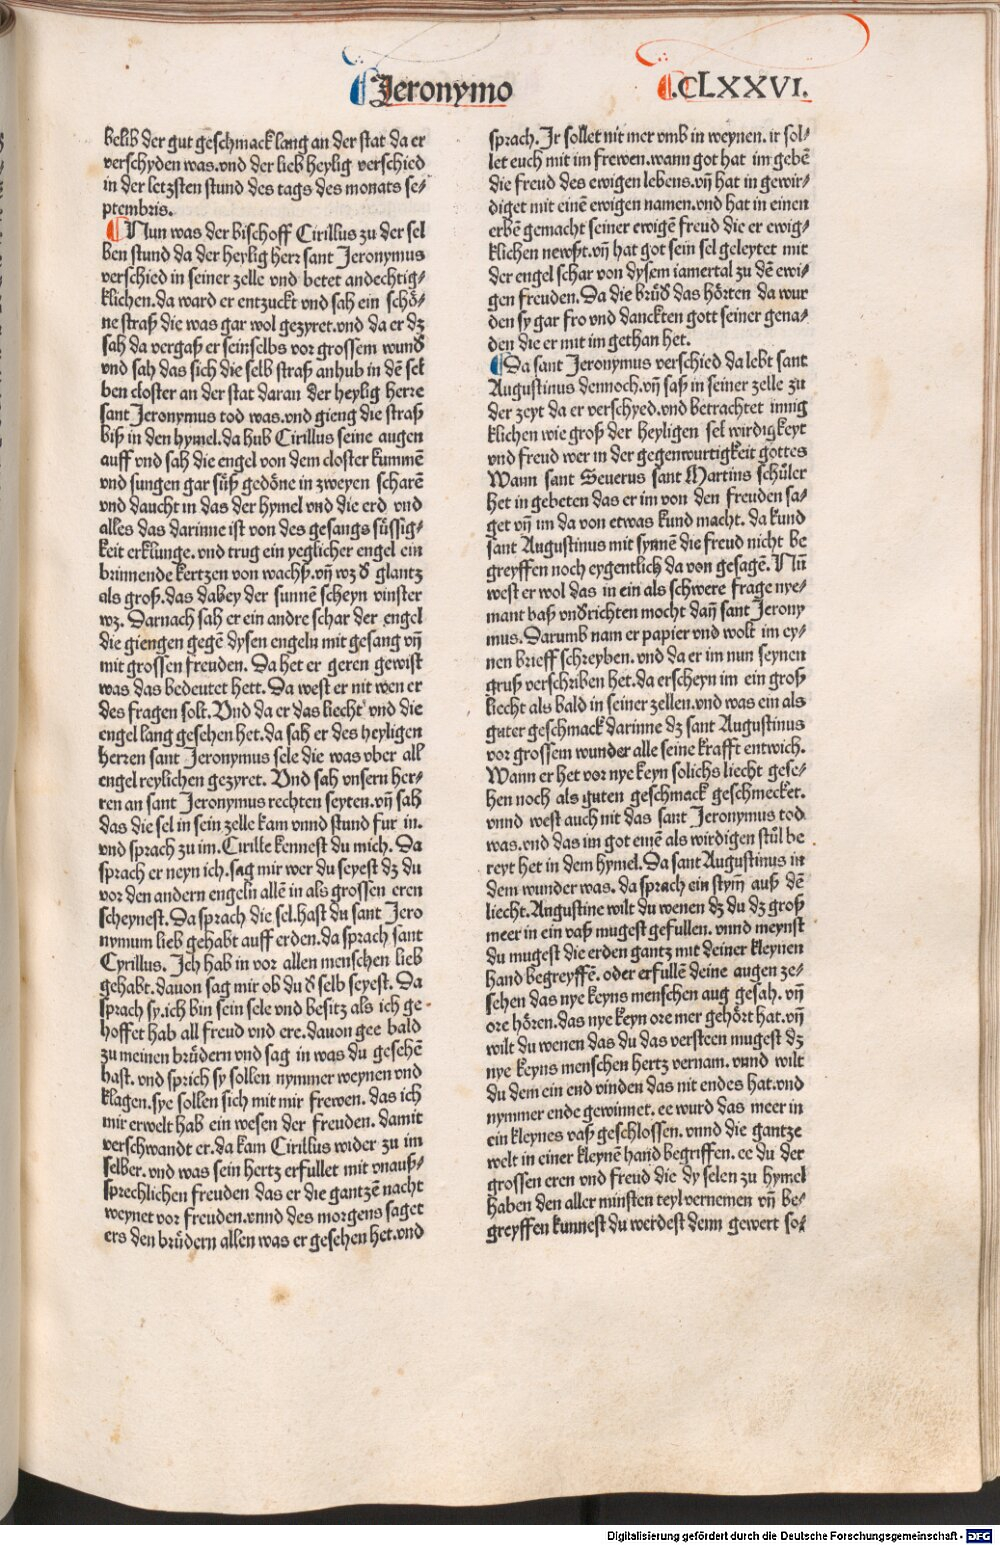 Jeronymo
.CLXXVI.
belib der gut geschmack lang an der stat da er
verschyden was.vnd der lieb heylig verschied
in der letzsten stund des tags des monats se⸗
ptembris.
Nun was der bischoff Cirillus zu der sel
ben stund da der heylig herr sant Jeronymus
verschied in seiner zelle vnd betet andechtig⸗
klichen.da ward er entzuckt vnd sah ein schö⸗
ne straß die was gar wol gezyret.vnd da er dz
sah da vergaß er seinselbs vor grossem wund̄
vnd sah das sich die selb straß anhub in dē sel
ben closter an der stat daran der heylig herre
sant Jeronymus tod was.vnd gieng die straß
biß in den hymel.da hub Cirillus seine augen
auff vnd sah die engel von dem closter kummē
vnd sungen gar süß gedöne in zweyen scharē
vnd daucht in das der hymel vnd die erd vnd
alles das darinne ist von des gesangs süssig⸗
keit erklunge.vnd trug ein yeglicher engel ein
brinnende kertzen von wachß.vn̄ wz d̄ glantz
als groß.das dabey der sunnē scheyn vinster
wz. Darnach sah er ein andre schar der engel
die giengen gegē dysen engeln mit gesang vn̄
mit grossen freuden. Da het er geren gewist
was das bedeutet hett. Da west er nit wen er
des fragen solt. Vnd da er das liecht vnd die
engel lang gesehen het.da sah er des heyligen
herren sant Jeronymus sele die was vber all
engel reylichen gezyret. Vnd sah vnsern her⸗
ren an sant Jeronymus rechten seyten.vn̄ sah
das die sel in sein zelle kam vnnd stund fur in.
vnd sprach zu im.Cirille kennest du mich. Da
sprach er neyn ich.sag mir wer du seyest dz du
vor den andern engeln allē in als grossen eren
scheynest.Da sprach die sel.hast du sant Jero
nymum lieb gehabt auff erden.da sprach sant
Cyrillus. Ich hab in vor allen menschen lieb
gehabt.dauon sag mir ob du d̄ selb seyest. Da
sprach sy.ich bin sein sele vnd besitz als ich ge
hoffet hab all freud vnd ere.dauon gee bald
zu meinen brüdern vnd sag in was du gesehē
hast.vnd sprich sy sollen nymmer weynen vnd
klagen.sye sollen sich mit mir frewen. das ich
mir erwelt hab ein wesen der freuden. damit
verschwandt er.da kam Cirillus wider zu im
selber.vnd was sein hertz erfullet mit vnauß⸗
sprechlichen freuden das er die gantzē nacht
weynet vor freuden.vnnd des morgens saget
ers den brüdern allen was er gesehen het.vnd
sprach. Ir sollet nit mer vmb in weynen.ir sol⸗
let euch mit im frewen.wann got hat im gebē
die freud des ewigen lebens.vn̄ hat in gewir⸗
diget mit einē ewigen namen.vnd hat in einen
erbē gemacht seiner ewigē freud die er ewig⸗
klichen newßt.vn̄ hat got sein sel geleytet mit
der engel schar von dysem iamertal zu dē ewi⸗
gen freuden. Da die brüd̄ das hörten da wur
den sy gar fro vnd danckten gott seiner gena⸗
den die er mit im gethan het.
Da sant Jeronymus verschied da lebt sant
Augustinus dennoch.vn̄ saß in seiner zelle zu
der zeyt da er verschyed.vnd betrachtet innig
klichen wie groß der heyligen sel wirdigkeyt
vnd freud wer in der gegenwurtigkeit gottes
Wann sant Seuerus sant Martins schüler
het in gebeten das er im von den freuden sa⸗
get vn̄ im da von etwas kund macht. da kund
sant Augustinus mit synnē die freud nicht be
greyffen noch eygentlich da von gesagē. Nun̄
west er wol das in ein als schwere frage nye⸗
mant baß vnd̄richten mocht dan̄ sant Jerony
mus.Darumb nam er papier vnd wolt im ey⸗
nen brieff schreyben.vnd da er im nun seynen
gruß verschriben het.da erscheyn im ein groß
liecht als bald in seiner zellen.vnd was ein als
guter geschmack darinne dz sant Augustinus
vor grossem wunder alle seine krafft entwich.
Wann er het vor nye keyn solichs liecht gese⸗
hen noch als guten geschmack geschmecket.
vnnd west auch nit das sant Jeronymus tod
was.vnd das im got einē als wirdigen stül be
reyt het in dem hymel.Da sant Augustinus in
dem wunder was.da sprach ein stym̄ auß dē
liecht.Augustine wilt du wenen dz du dz groß
meer in ein vaß mugest gefullen. vnnd meynst
du mugest die erden gantz mit deiner kleynen
hand begreyffē. oder erfullē deine augen ze⸗
sehen das nye keyns menschen aug gesah. vn̄
ore hören.das nye keyn ore mer gehört hat.vn̄
wilt du wenen das du das versteen mugest dz
nye keyns menschen hertz vernam. vnnd wilt
du dem ein end vinden das nit endes hat.vnd
nymmer ende gewinnet. ee wurd das meer in
ein kleynes vaß geschlossen. vnnd die gantze
welt in einer kleynē hand begriffen. ee du der
grossen eren vnd freud die dy selen zu hymel
haben den aller minsten teyl vernemen vn̄ be⸗
greyffen kunnest du werdest denn gewert sol
Digitalisierung gefördert durch die Deutsche Forschungsgemeinschaft - DFG